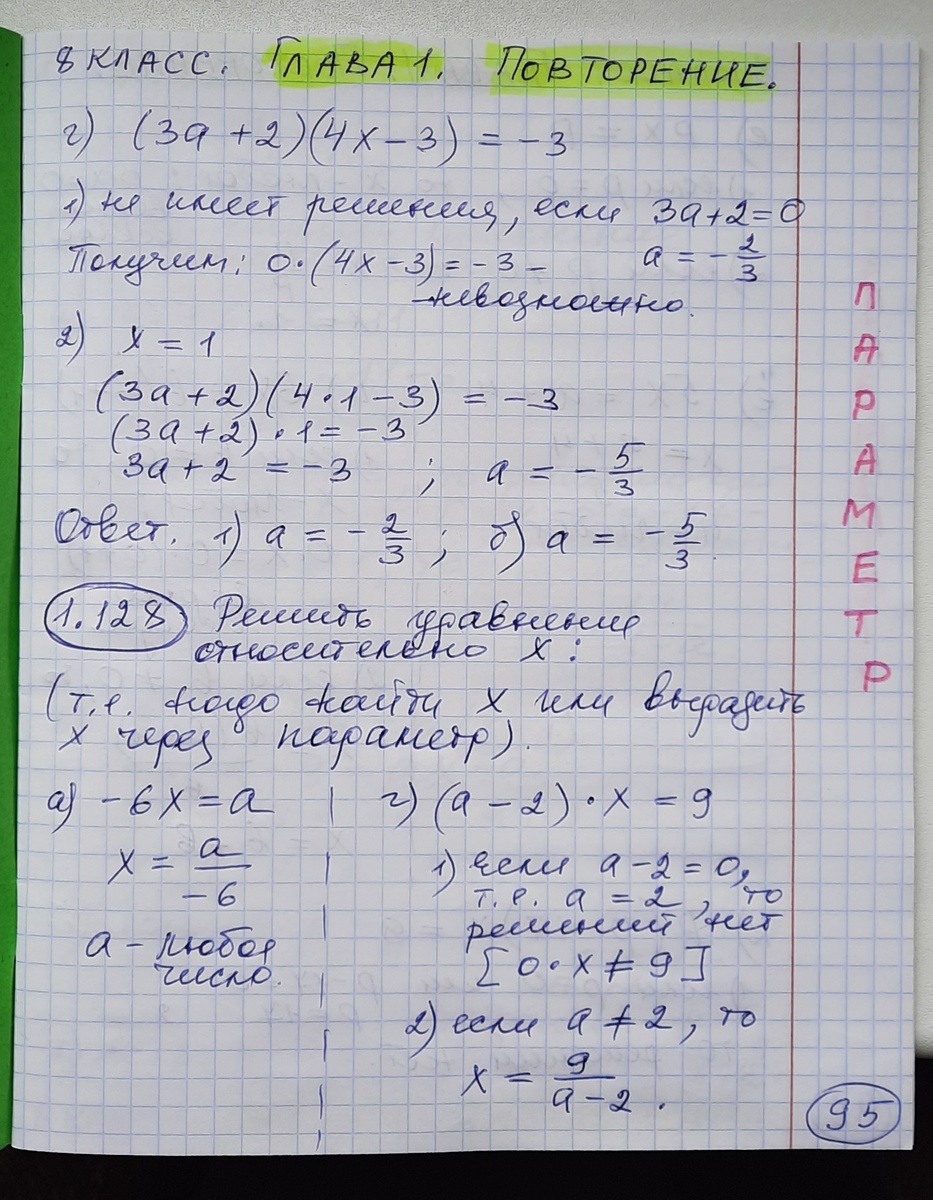 8 КЛАСС. ГЛАВА 1. ПОВТОРЕНИЕ.
г) (3a + 2)(4x - 3) = -3
1) не имеет решения, если 3a + 2 = 0
Получим: 0·(4x - 3) = -3 - a = -2/3
невозможно.
2) x = 1
(3a + 2)(4·1 - 3) = -3
(3a + 2)·1 = -3
3a + 2 = -3 ; a = -5/3
Ответ. 1) a = -2/3 ; б) a = -5/3.
1.128 Решить уравнение
относительно x:
(т.е. надо найти x или выразить
x через параметр).
а) -6x = a
x = a/-6
a - любое
число.
г) (a - 2)·x = 9
1) если a - 2 = 0,
т.е. a = 2, то
решений нет
[0·x ≠ 9]
2) если a ≠ 2, то
x = 9/a - 2.
ПАРАМЕТР
95